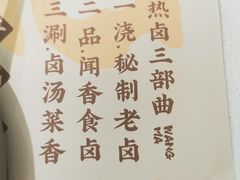 热卤三部曲
WANG MA
一浇·秘制老卤
二品·闻香食卤
三涮·卤汤菜香